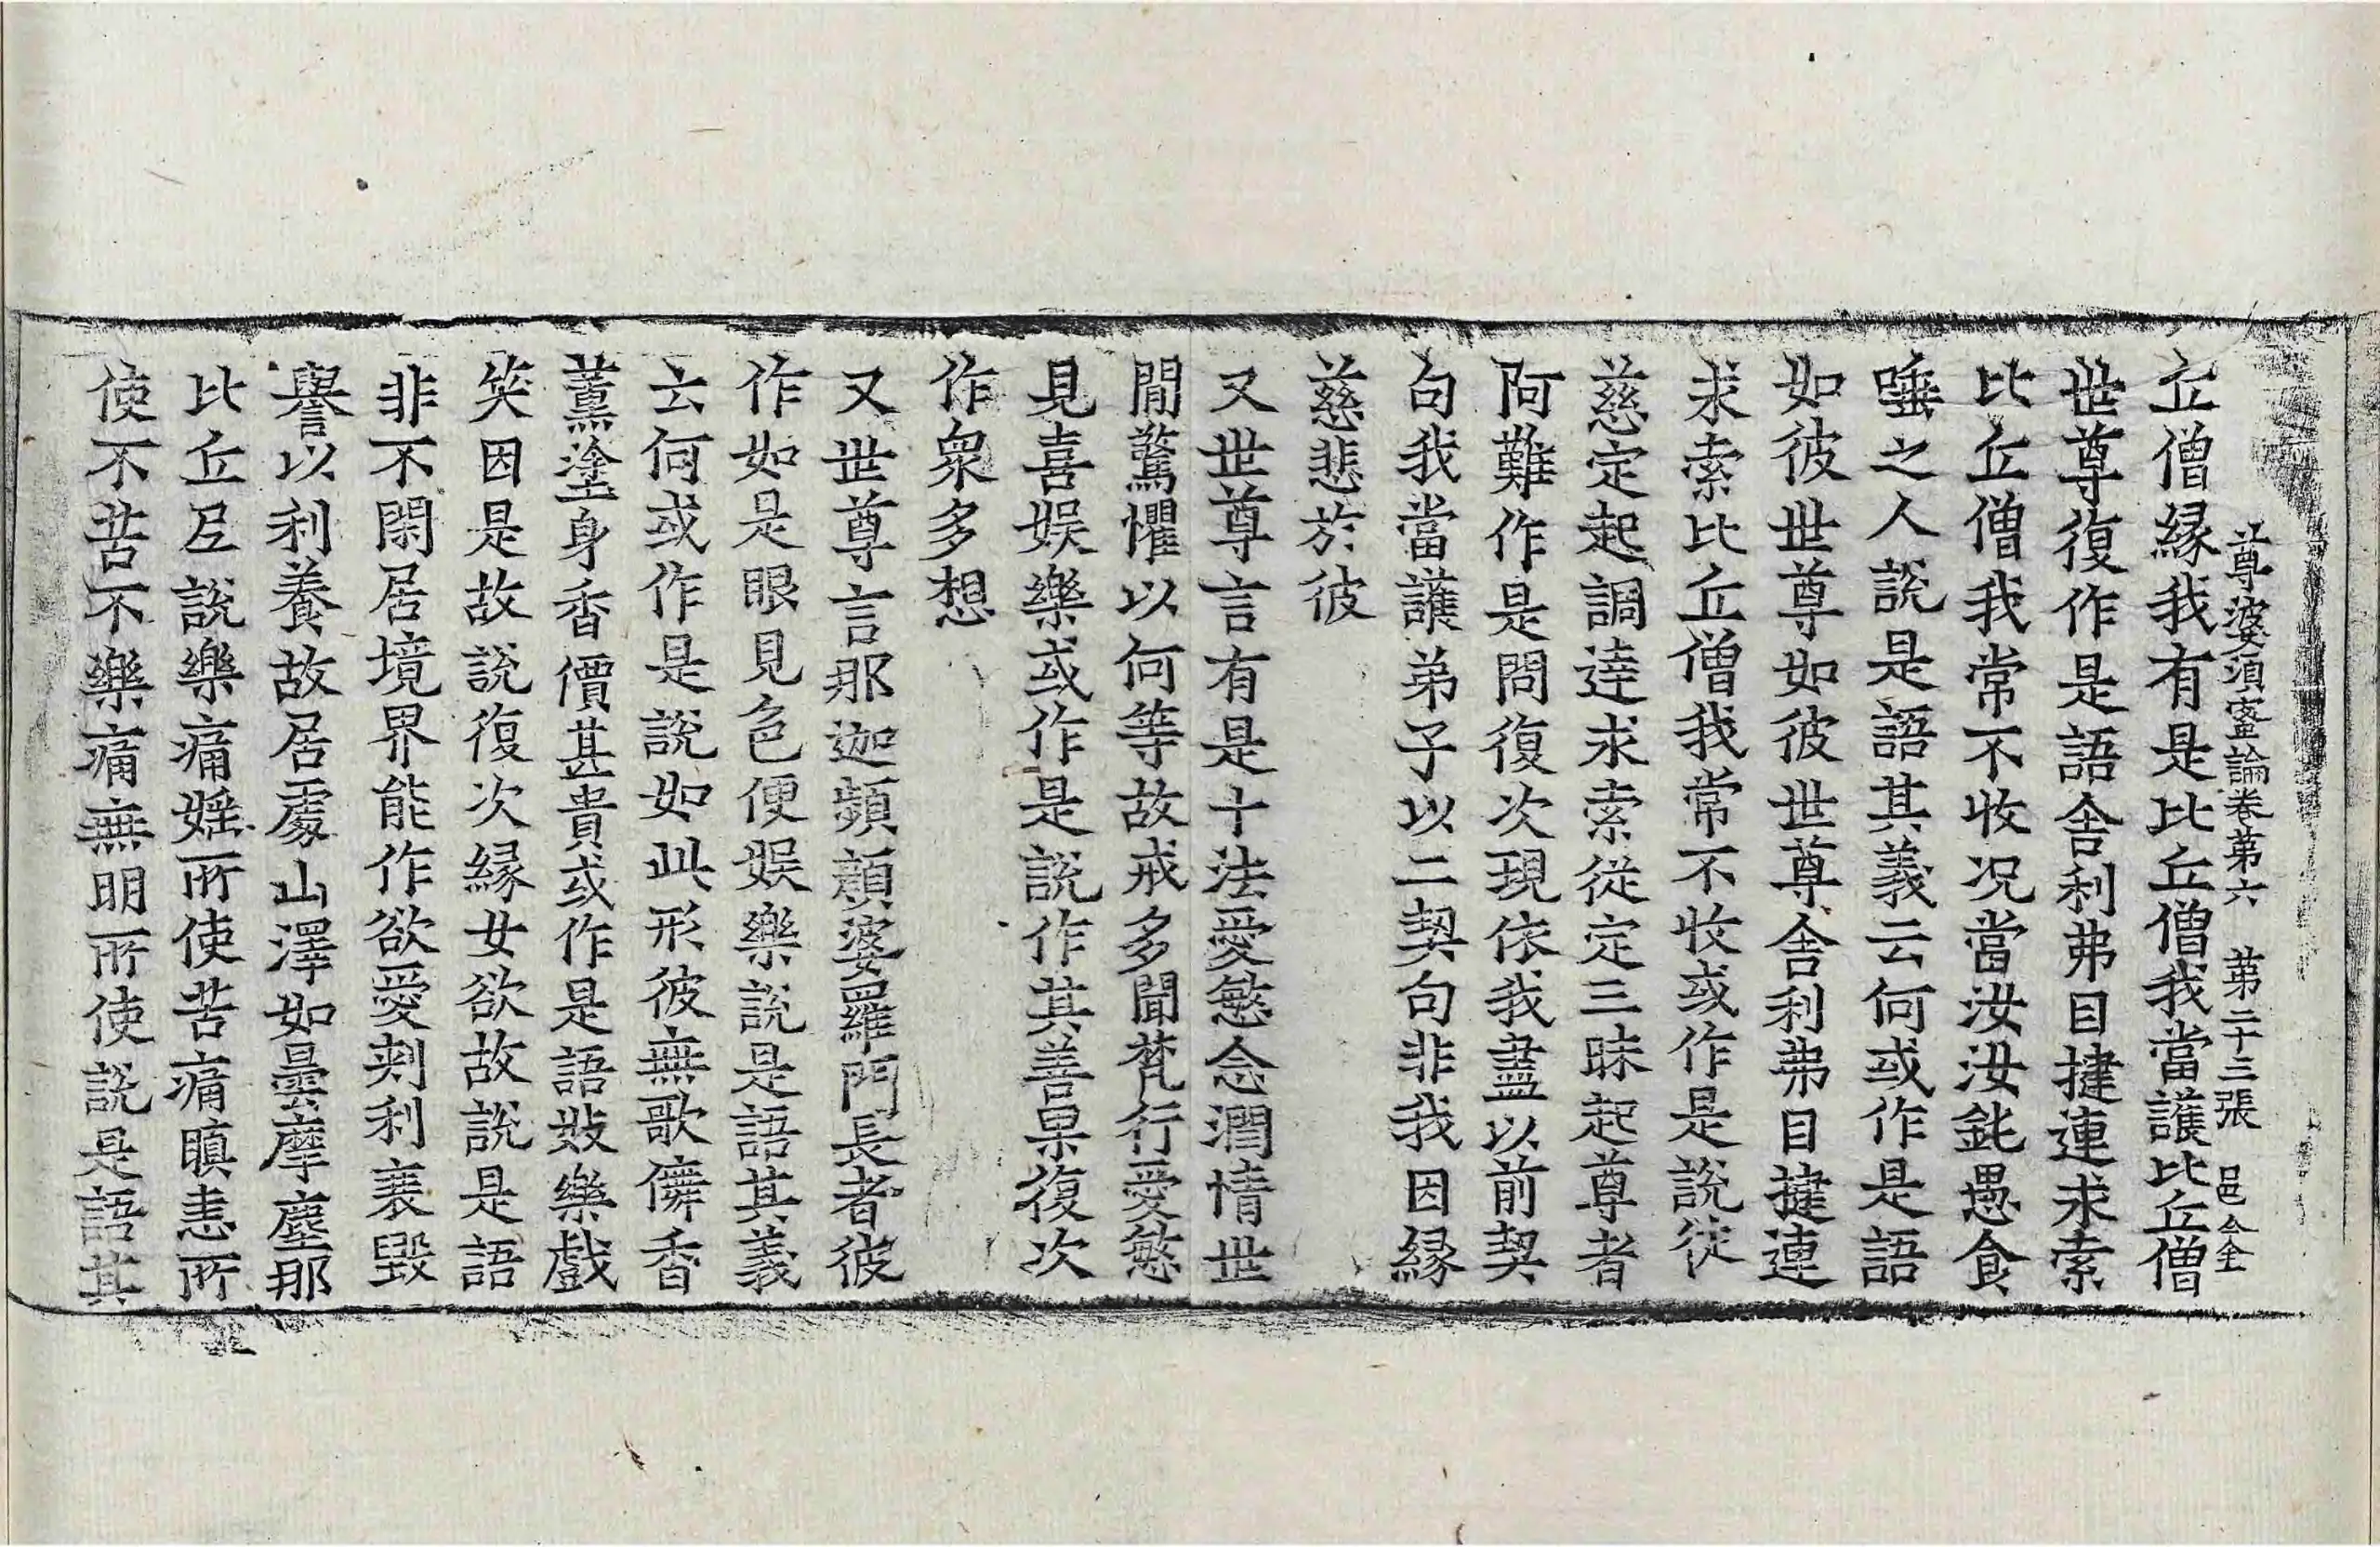 尊婆須蜜論卷第六　第二十三張　邑
丘僧縁我有是比丘僧我當護比丘僧
世尊復作是語舍利弗目揵連求索
比丘僧我常不收况當汝汝𠯗愚食
唾之人說是語其義云何或作是語
如彼世尊如彼世尊舍利弗目揵連
求索比丘僧我常不收或作是說從
慈定起調達求索從定三昧起尊者
阿難作是問復次現依我盡以前契
句我當護弟子以二契句非我因縁
慈悲於彼
又世尊言有是十法愛慜念潤情世
間驚懼以何等故戒多聞梵行愛慜
見喜娛樂或作是說作其善果復次
作衆多想
又世尊言那迦頻顛婆羅門長者彼
作如是眼見色便娛樂說是語其義
云何或作是說如此形彼無歌儛香
薰塗身香價甚貴或作是語妓樂戲
笑因是故說復次縁女欲故說是語
非不閑居境界能作欲愛剎利衰毀
譽以利養故居處山澤如曇摩塵那
比丘𡰱說樂痛婬所使苦痛瞋恚所
使不苦不樂痛無明所使說是語其